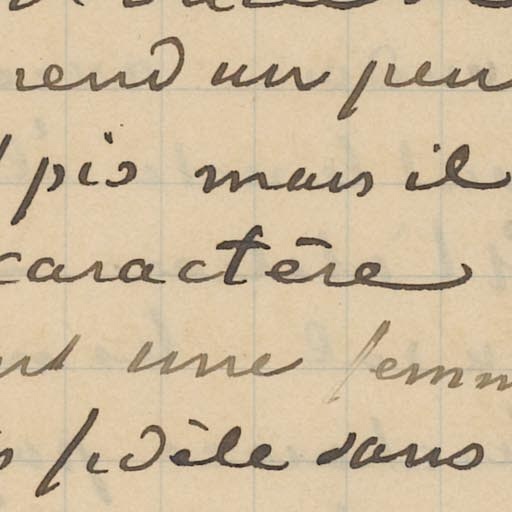 rend un peu
pis mais il
caractère
une femm
fidèle dans